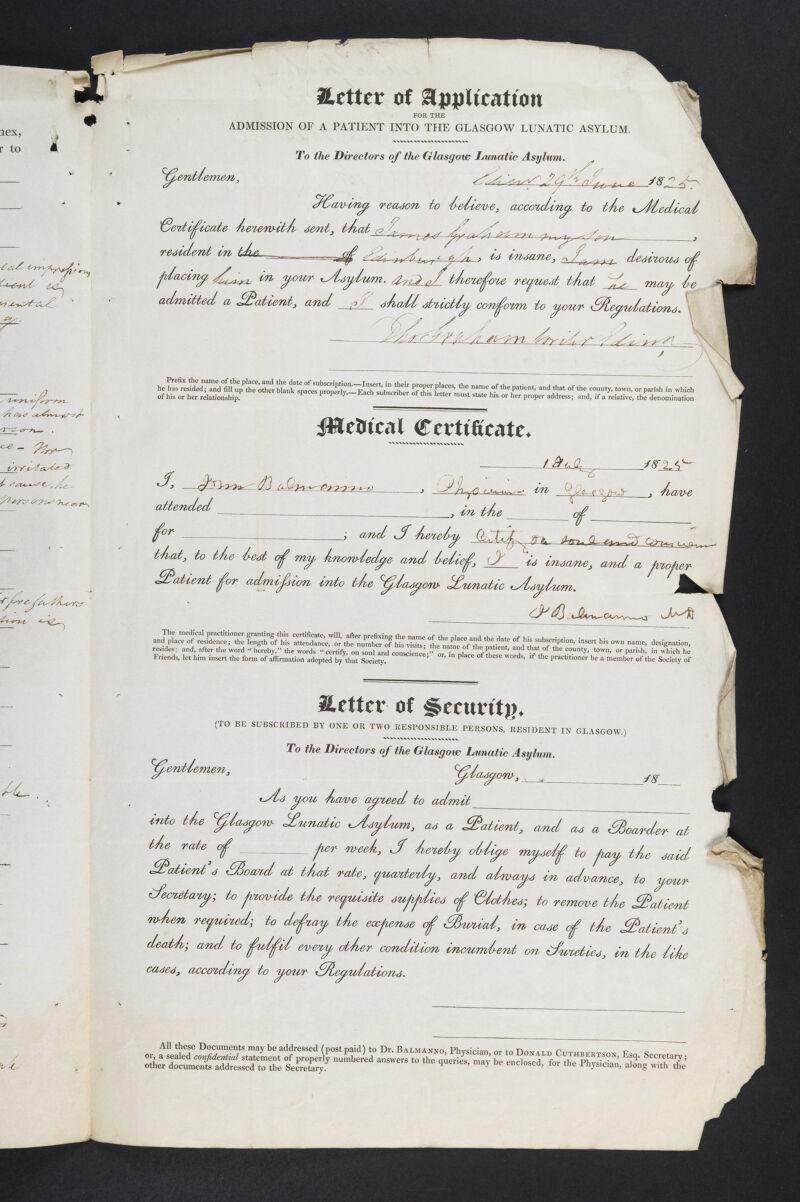 nex,
r to
tal impression
tient is
mental
uniform
has almost
irritated
cause, he
persons near
forefathers
tion is
Letter of Application
FOR THE
ADMISSION OF A PATIENT INTO THE GLASGOW LUNATIC ASYLUM.
To the Directors of the Glasgow Lunatic Asylum.
Gentlemen,
Edinr. 29th June 1825.
Having reason to believe, according to the Medical
Certificate herewith sent, that James Graham my son,
resident in the of Edinburgh, is insane, I am desirous of
placing him in your Asylum. and I therefore request that he may be
admitted a Patient, and I shall strictly conform to your Regulations.
Tho Graham writer Edinr.
Prefix the name of the place, and the date of subscription.—Insert, in their proper places, the name of the patient, and that of the county, town, or parish in which
he has resided; and fill up the other blank spaces properly.—Each subscriber of this letter must state his or her proper address; and, if a relative, the denomination
of his or her relationship.
Medical Certificate.
1 July 1825
I, John Balmanno, Physician in Glasgow, have
attended , in the of
for ; and I hereby Certify on soul and conscience
that, to the best of my knowledge and belief, I is insane, and a proper
Patient for admission into the Glasgow Lunatic Asylum.
J Balmanno MD
The medical practitioner granting this certificate, will, after prefixing the name of the place and the date of his subscription, insert his own name, designation,
and place of residence; the length of his attendance, or the number of his visits; the name of the patient, and that of the county, town, or parish, in which he
resides: and, after the word "hereby," the words "certify, on soul and conscience;" or, in place of these words, if the practitioner be a member of the Society of
Friends, let him insert the form of affirmation adopted by that Society.
Letter of Security.
(TO BE SUBSCRIBED BY ONE OR TWO RESPONSIBLE PERSONS, RESIDENT IN GLASGOW.)
To the Directors of the Glasgow Lunatic Asylum.
Gentlemen,
Glasgow, 18
As you have agreed to admit
into the Glasgow Lunatic Asylum, as a Patient, and as a Boarder at
the rate of per week, I hereby oblige myself to pay the said
Patient's Board at that rate, quarterly, and always in advance, to your
Secretary; to provide the requisite supplies of Clothes; to remove the Patient
when required; to defray the expense of Burial, in case of the Patient's
death; and to fulfil every other condition incumbent on Sureties, in the like
cases, according to your Regulations.
All these Documents may be addressed (post paid) to Dr. BALMANNO, Physician, or to DONALD CUTHBERTSON, Esq. Secretary;
or, a sealed confidential statement of properly numbered answers to the queries, may be enclosed, for the Physician, along with the
other documents addressed to the Secretary.